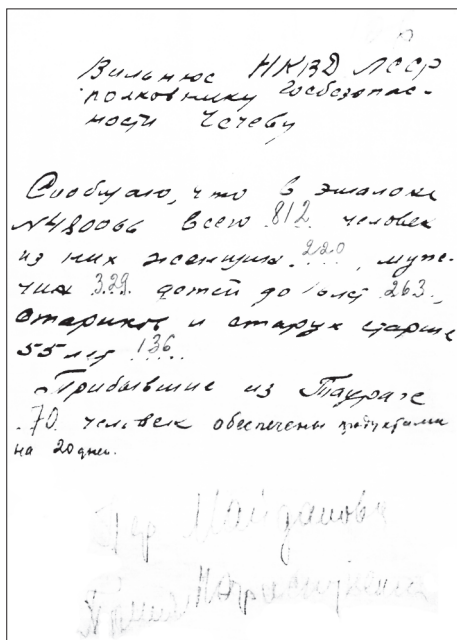 Вильнюс НКВД ЛССР
полковнику Госбезопас-
ности Чечеву
Сообщаю, что в эшалоне
N480066 всего 812 человек
из них женщин 220, муж-
чин 329 детей до лет 263,
стариков и старух старше
55 лет 136.
Прибывшие из Таураге
70 человек обеспечены продуктами
на 20 дней.